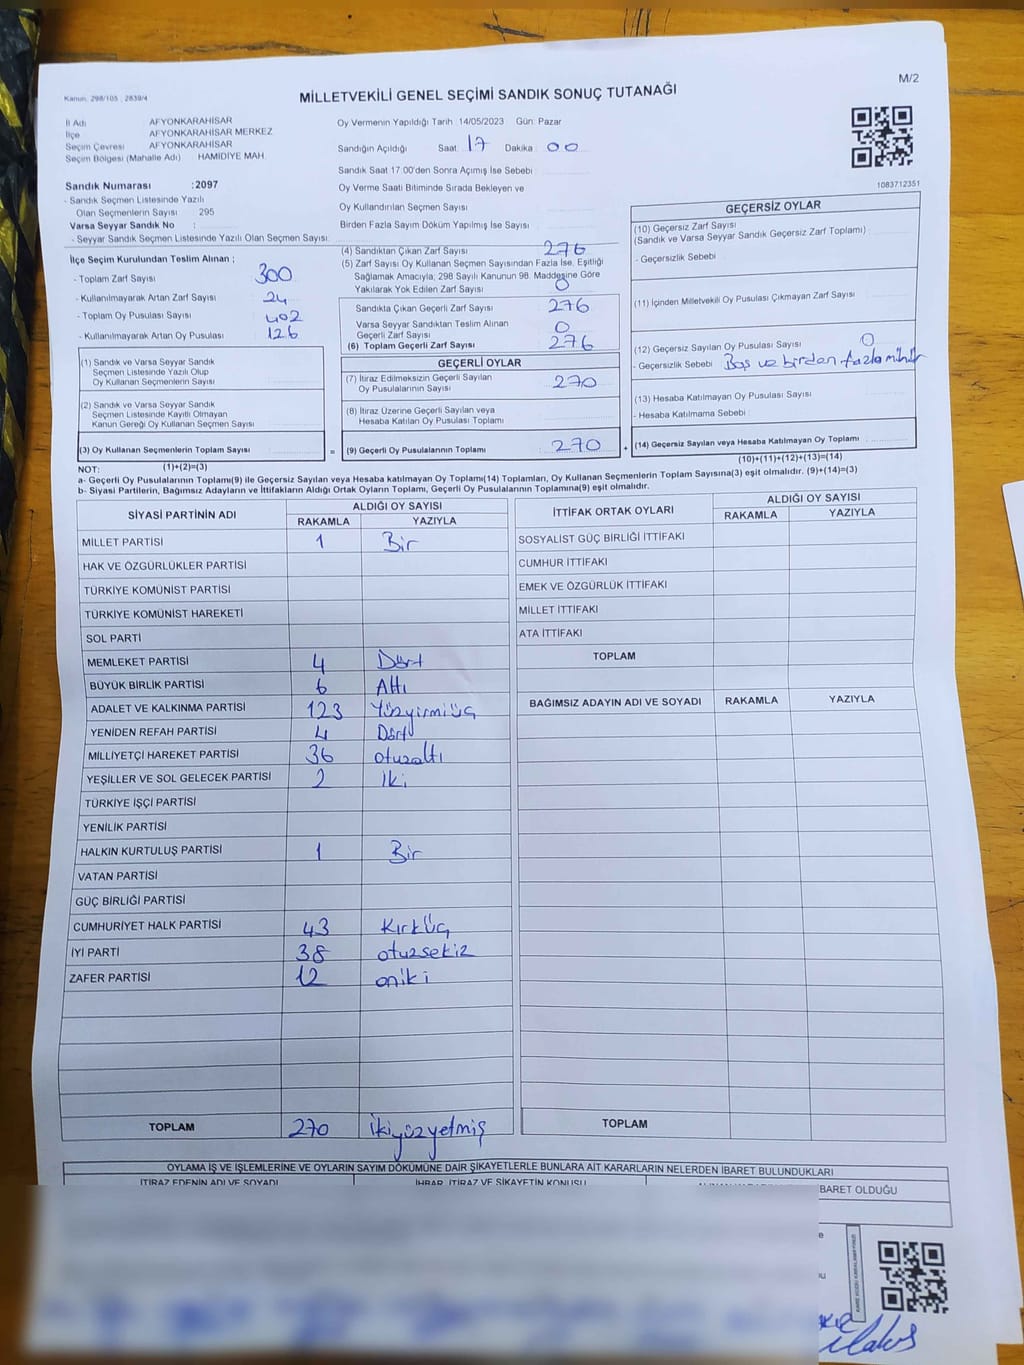 M/2
Kanun: 298/105 ; 2839/4
MİLLETVEKİLİ GENEL SEÇİMİ SANDIK SONUÇ TUTANAĞI
İl Adı AFYONKARAHİSAR
İlçe AFYONKARAHİSAR MERKEZ
Seçim Çevresi AFYONKARAHİSAR
Seçim Bölgesi (Mahalle Adı) HAMİDİYE MAH.
Sandık Numarası :2097
- Sandık Seçmen Listesinde Yazılı
Olan Seçmenlerin Sayısı 295
Varsa Seyyar Sandık No :
- Seyyar Sandık Seçmen Listesinde Yazılı Olan Seçmen Sayısı:
Oy Vermenin Yapıldığı Tarih :14/05/2023 Gün: Pazar
Sandığın Açıldığı Saat: 17 Dakika: 00
Sandık Saat 17:00'den Sonra Açımış İse Sebebi :
Oy Verme Saati Bitiminde Sırada Bekleyen ve
Oy Kullandırılan Seçmen Sayısı
Birden Fazla Sayım Döküm Yapılmış İse Sayısı :
1083712351
İlçe Seçim Kurulundan Teslim Alınan ;
- Toplam Zarf Sayısı : 300
- Kullanılmayarak Artan Zarf Sayısı : 24
- Toplam Oy Pusulası Sayısı : 402
- Kullanılmayarak Artan Oy Pusulası : 126
(1) Sandık ve Varsa Seyyar Sandık
Seçmen Listesinde Yazılı Olup
Oy Kullanan Seçmenlerin Sayısı :
(2) Sandık ve Varsa Seyyar Sandık
Seçmen Listesinde Kayıtlı Olmayan
Kanun Gereği Oy Kullanan Seçmen Sayısı :
(3) Oy Kullanan Seçmenlerin Toplam Sayısı :
(1)+(2)=(3)
(4) Sandıktan Çıkan Zarf Sayısı : 276
(5) Zarf Sayısı Oy Kullanan Seçmen Sayısından Fazla İse, Eşitliği
Sağlamak Amacıyla, 298 Sayılı Kanunun 98. Maddesine Göre
Yakılarak Yok Edilen Zarf Sayısı : 0
Sandıkta Çıkan Geçerli Zarf Sayısı : 276
Varsa Seyyar Sandıktan Teslim Alınan
Geçerli Zarf Sayısı : 0
(6) Toplam Geçerli Zarf Sayısı : 276
GEÇERLİ OYLAR
(7) İtiraz Edilmeksizin Geçerli Sayılan
Oy Pusulalarının Sayısı : 270
(8) İtiraz Üzerine Geçerli Sayılan veya
Hesaba Katılan Oy Pusulası Toplamı :
= (9) Geçerli Oy Pusulalarının Toplamı : 270 +
GEÇERSİZ OYLAR
(10) Geçersiz Zarf Sayısı
(Sandık ve Varsa Seyyar Sandık Geçersiz Zarf Toplamı) :
- Geçersizlik Sebebi :
(11) İçinden Milletvekili Oy Pusulası Çıkmayan Zarf Sayısı :
(12) Geçersiz Sayılan Oy Pusulası Sayısı : 0
- Geçersizlik Sebebi : Boş ve birden fazla mühür
(13) Hesaba Katılmayan Oy Pusulası Sayısı :
- Hesaba Katılmama Sebebi :
(14) Geçersiz Sayılan veya Hesaba Katılmayan Oy Toplamı :
(10)+(11)+(12)+(13)=(14)
NOT:
a- Geçerli Oy Pusulalarının Toplamı(9) ile Geçersiz Sayılan veya Hesaba katılmayan Oy Toplamı(14) Toplamları, Oy Kullanan Seçmenlerin Toplam Sayısına(3) eşit olmalıdır. (9)+(14)=(3)
b- Siyasi Partilerin, Bağımsız Adayların ve İttifakların Aldığı Ortak Oyların Toplamı, Geçerli Oy Pusulalarının Toplamına(9) eşit olmalıdır.
SİYASİ PARTİNİN ADI ALDIĞI OY SAYISI
RAKAMLA YAZIYLA
MİLLET PARTİSİ 1 Bir
HAK VE ÖZGÜRLÜKLER PARTİSİ
TÜRKİYE KOMÜNİST PARTİSİ
TÜRKİYE KOMÜNİST HAREKETİ
SOL PARTİ
MEMLEKET PARTİSİ 4 Dört
BÜYÜK BİRLİK PARTİSİ 6 Altı
ADALET VE KALKINMA PARTİSİ 123 Yüzyirmiüç
YENİDEN REFAH PARTİSİ 4 Dört
MİLLİYETÇİ HAREKET PARTİSİ 36 otuzaltı
YEŞİLLER VE SOL GELECEK PARTİSİ 2 İki
TÜRKİYE İŞÇİ PARTİSİ
YENİLİK PARTİSİ
HALKIN KURTULUŞ PARTİSİ 1 Bir
VATAN PARTİSİ
GÜÇ BİRLİĞİ PARTİSİ
CUMHURİYET HALK PARTİSİ 43 Kırküç
İYİ PARTİ 38 otuzsekiz
ZAFER PARTİSİ 12 oniki
TOPLAM 270 İkiyüzyetmiş
İTTİFAK ORTAK OYLARI ALDIĞI OY SAYISI
RAKAMLA YAZIYLA
SOSYALİST GÜÇ BİRLİĞİ İTTİFAKI
CUMHUR İTTİFAKI
EMEK VE ÖZGÜRLÜK İTTİFAKI
MİLLET İTTİFAKI
ATA İTTİFAKI
TOPLAM
BAĞIMSIZ ADAYIN ADI VE SOYADI RAKAMLA YAZIYLA
TOPLAM
OYLAMA İŞ VE İŞLEMLERİNE VE OYLARIN SAYIM DÖKÜMÜNE DAİR ŞİKAYETLERLE BUNLARA AİT KARARLARIN NELERDEN İBARET BULUNDUKLARI
İTİRAZ EDENİN ADI VE SOYADI İHBAR, İTİRAZ VE ŞİKAYETİN KONUSU
BARET OLDUĞU